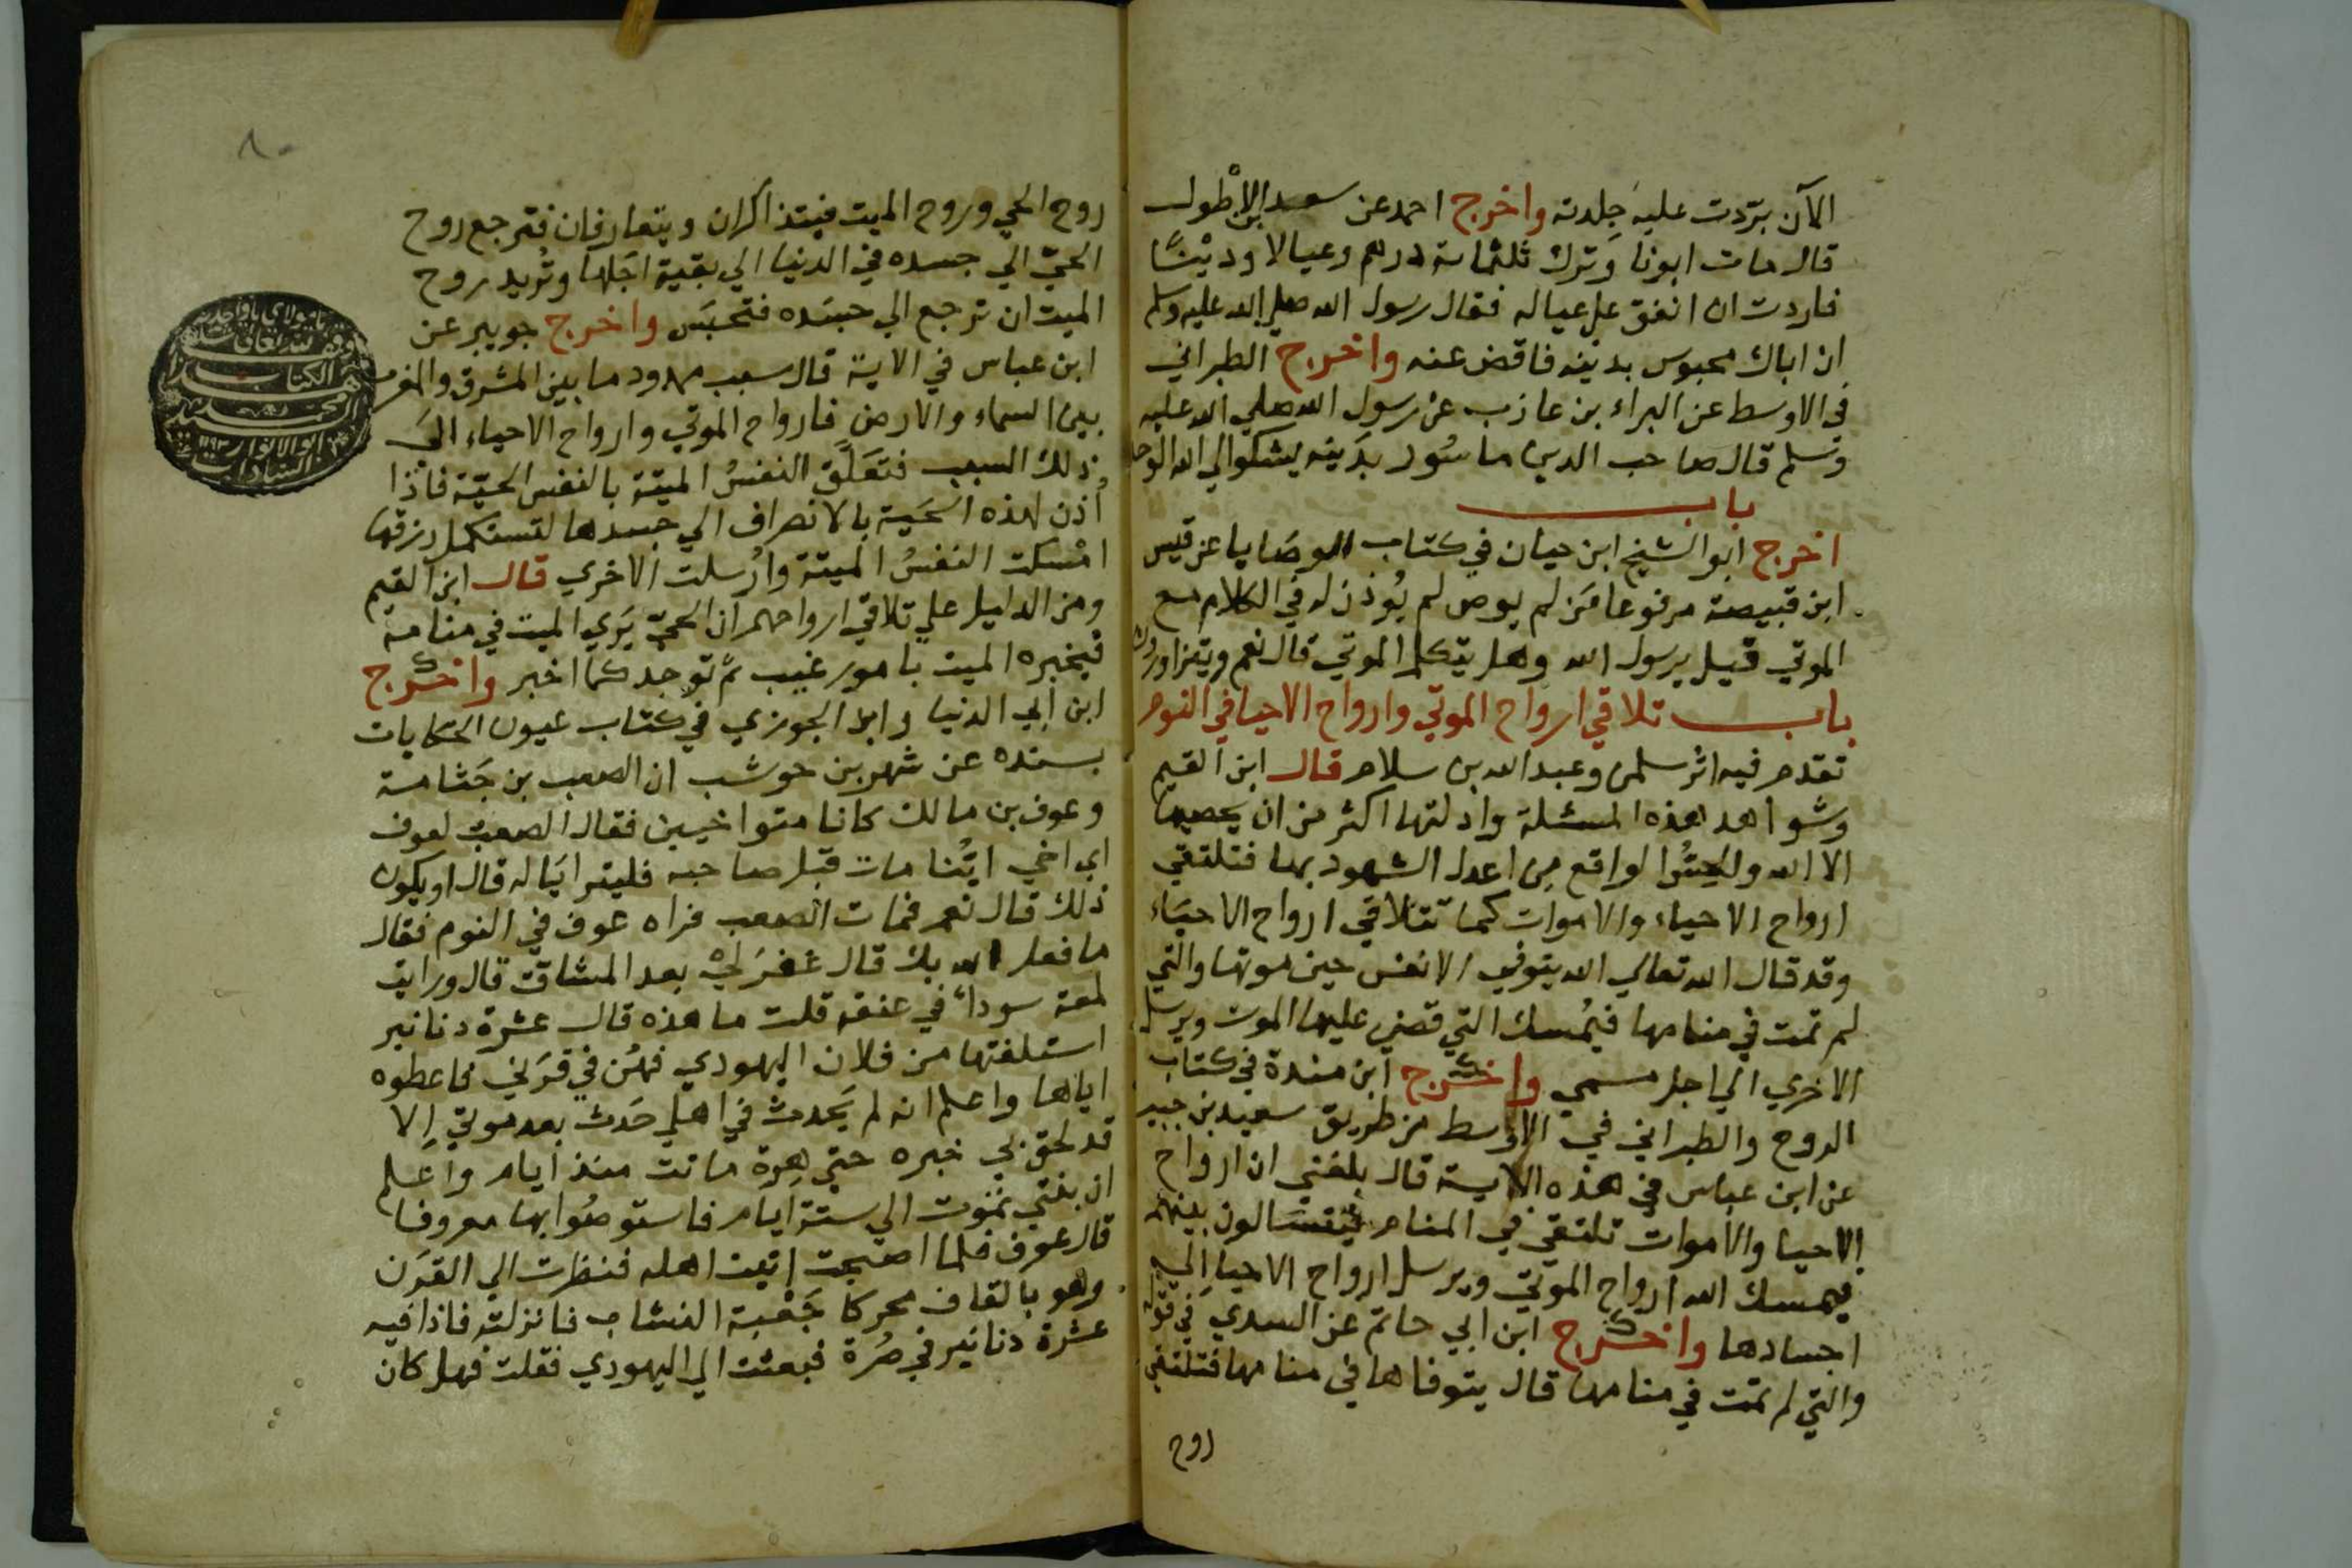 الآن بردت عليه جِلدته واخرج احمد عن سعد بن الاطْول
قال مات ابونا وَترك ثلثماية درهم وعيالا ودَيْنًا
فاردت ان انفق على عياله فقال رسول الله صلى الله عليه وسلم
ان اباك محبوس بدَينه فاقض عنه واخرج الطبراني
في الاوسط عن البراء بن عازب عن رسول الله صلي الله عليه
وسلم قال صاحب الدين ماسُور بدَينه يشكوا الي الله الوحد
باب
اخرج ابو الشيخ ابن حيان في كتاب الوصَايا عن قيس
ابن قبيصة مرفوعا مَن لم يوص لم يُوذن له في الكلام مع
الموتي قيل يرسول الله وهل يتكلم الموتي قال نعم ويتزاورون
باب تلاقي ارواح الموتي وارواح الاحيا في النوم
تقدم فيه اثر سلمن وعبد الله بن سلام قال ابن القيم
وشواهد هذه المسئلة وادلتها اكثر من ان يحصيها
الا الله والحِسُّ والواقع مِن اعدل الشهود بها فتلتقي
ارواح الاحياء والاموات كما تتلاقي ارواح الاحيَاء
وقد قال الله تعالي الله يتوفي الانفس حين موتها والتي
لم تمت في منامها فيُمسك التي قضي عليها الموت ويرسل
الاخري الي اجل مسمي واخرج ابن مندة في كتاب
الروح والطبراني في الاوسط من طريق سعيد بن جبير
عن ابن عباس في هذه الاية قال بلغني ان ارواح
الاحيا والاموات تلتقي في المنام فيتسَالون بينهم
فيمسك الله ارواح الموتي ويرسل ارواح الاحيا اِلي
اجسادها واخرج ابن ابي حاتم عن السدي في قوله
والتي لم تمت في منامها قال يتوفاها في منامها فتلتقي
روح
٨٠
روح الحي وروح الميت فيتذاكران ويتعارفان فترجع روح
الحيّ الي جسده في الدنيا الي بقية اجَلها وتُريد روح
الميت ان ترجع الي جسَده فتحبَس واخرج جويبر عن
ابن عباس في الاية قال سبب ممدود ما بين المشرق والمغرب
بين السماء والارض فارواح الموتي وارواح الاحياء الىَ
ذلك السبب فتعَلَّق النفسُ الميتة بالنفس الحيّة فاذا
اُذن لهذه الحَية بالانصراف الي جسدها لتستكمل رزقها
امْسكت النفسُ الميتة واُرسلت الاخري قال ابن القيم
ومن الدليل علي تلاقي ارواحهم ان الحيّ يَري الميت في منامه
فيخبره الميت بامور غيب ثم توجد كما اخبر واخرج
ابن ابي الدنيا وابن الجوزي في كتاب عيون الحكايات
بسنده عن شهر بن حوشب ان الصعب بن جَثامة
وعوف بن مالك كانا متواخيين فقال الصعب لعوف
اي اخي ايّنا مات قبل صاحبه فليتراءَيا له قال او يكون
ذلك قال نعم فمات الصعب فراه عوف في النوم فقال
ما فعل الله بك قال غفرَ لي بعد المشاقّ قال ورايت
لمعة سوداء في عنقه قلت ما هذه قال عشرة دنانير
استلفتها من فلان اليهودي فهُن في قَرَني فاعطوه
اياها واعلم انه لم يَحدث في اهلي حَدث بعد موتي اِلا
قد لحق بي خبره حتي هِرة ماتت منذ ايام واعلم
ان بنتي تموت الي ستة ايام فاستوصُوا بها معروفا
قال عوف فلما اصبحت اتيت اهله فنظرت الي القرَن
وهو بالقاف محركا جَعْبة النشاب فانزلته فاذا فيه
عشرة دنانير في صُرة فبعثت الي اليهودي فقلت فهل كان